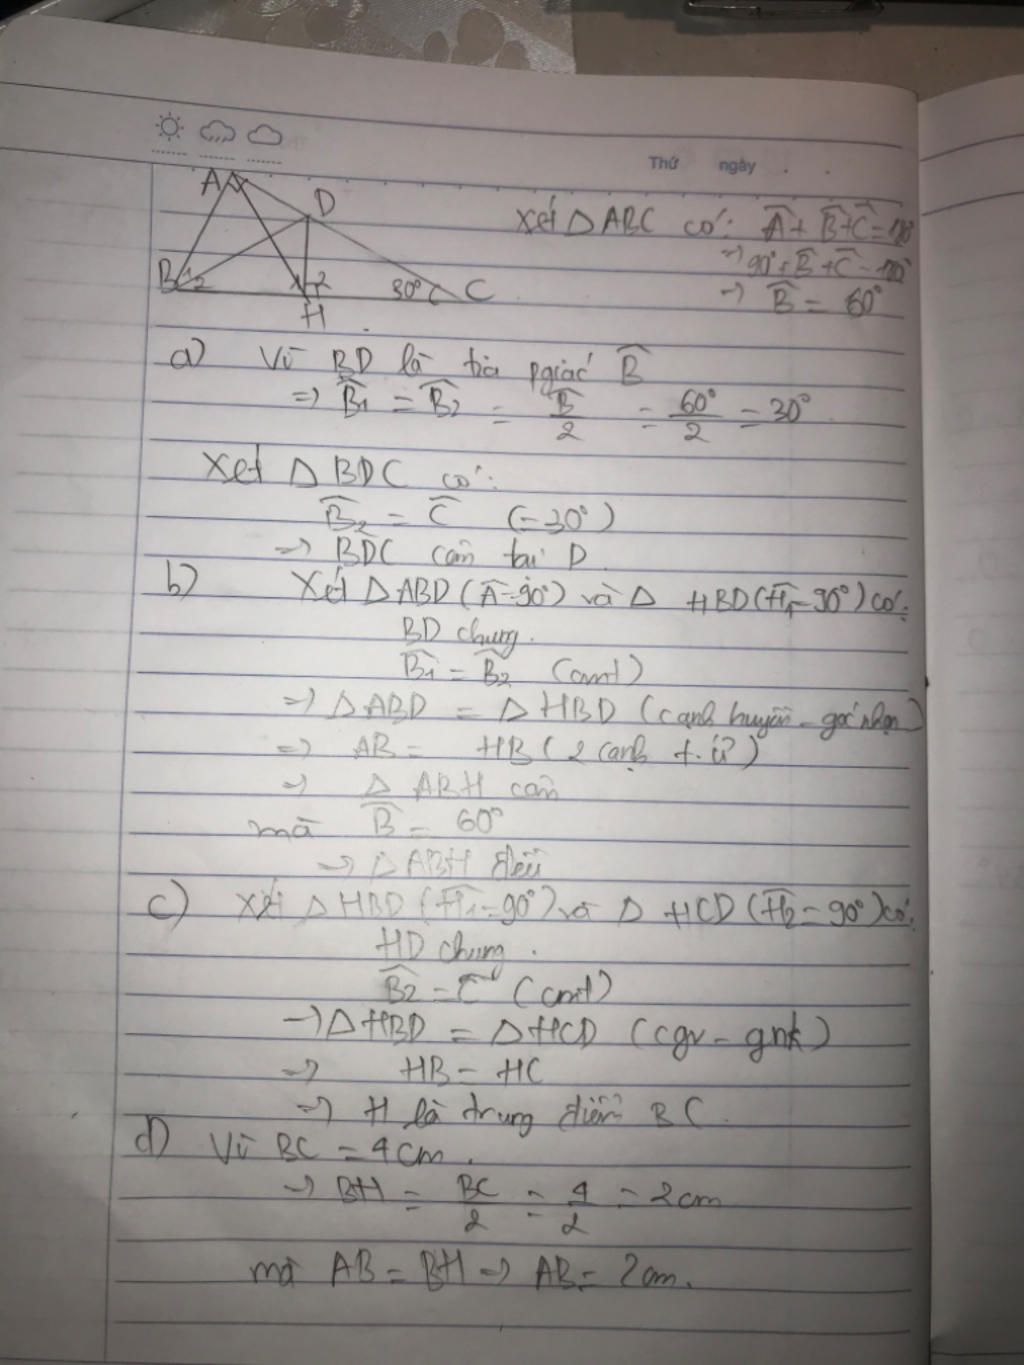 Thứ ngày
A
D
B 1 2
1 2
30° C
H
Xét △ABC có: Â + B̂ + Ĉ = 180°
=> 90° + B̂ + Ĉ = 180°
=> B̂ = 60°
a) Vì BD là tia pgiác B̂
=> B̂1 = B̂2 = B̂/2 = 60°/2 = 30°
Xét △BDC có:
B̂2 = Ĉ (=30°)
=> BDC cân tại D
b) Xét △ABD (Â=90°) và △ HBD (Ĥ1=90°) có:
BD chung.
B̂1 = B̂2 (cmt)
=> △ABD = △HBD (cạnh huyền - góc nhọn)
=> AB = HB (2 cạnh t.ứ)
=> △ ABH cân
mà B̂ = 60°
=> △ABH đều
c) Xét △HBD (Ĥ1=90°) và △ HCD (Ĥ2=90°) có:
HD chung.
B̂2 = Ĉ (cmt)
=> △HBD = △HCD (cgv - gnk)
=> HB = HC
=> H là trung điểm BC.
d) Vì BC = 4cm.
=> BH = BC/2 = 4/2 = 2cm
mà AB = BH => AB = 2cm.